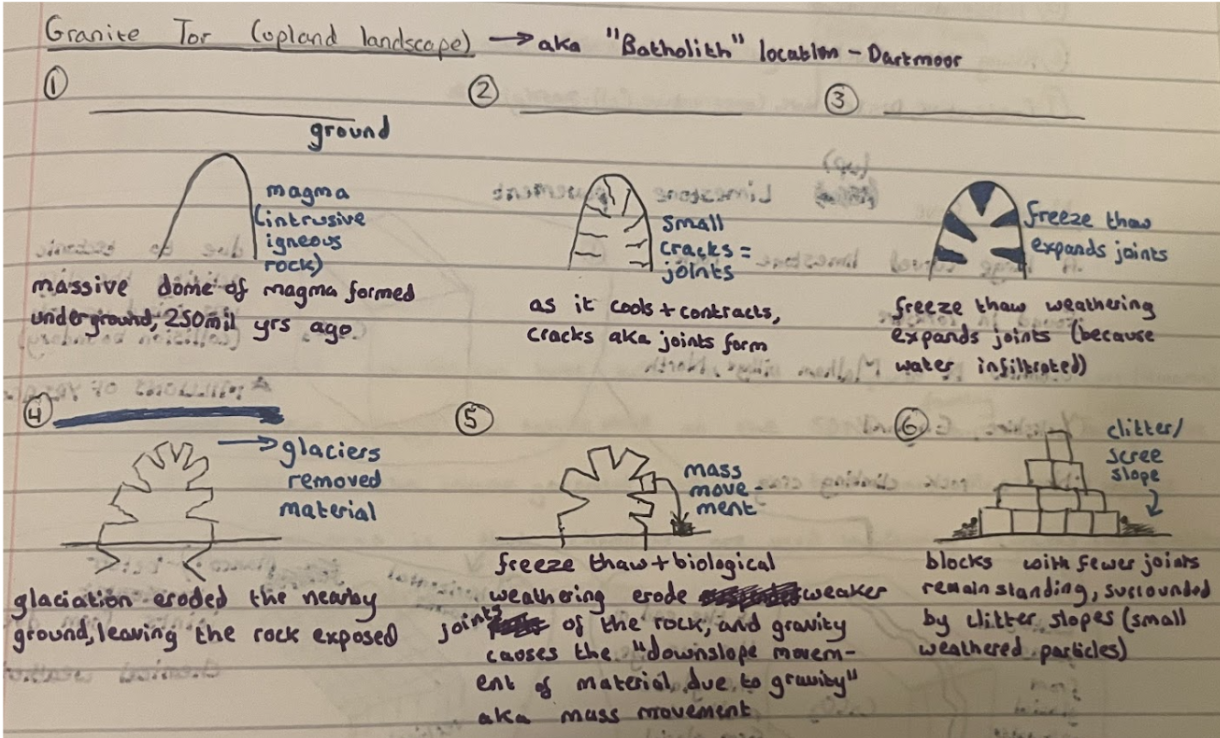 Granite Tor (upland landscape) → aka "Batholith" location - Dartmoor
①
ground
magma
(intrusive
igneous
rock)
massive dome of magma formed
underground, 250mil yrs ago
②
small
cracks =
joints
as it cools + contracts,
cracks aka joints form
③
freeze thaw
expands joints
freeze thaw weathering
expands joints (because
water infiltrated)
④
→ glaciers
removed
material
glaciation eroded the nearby
ground, leaving the rock exposed
⑤
mass
move-
ment
freeze thaw + biological
weathering erode weaker
joints of the rock, and gravity
causes the "downslope movem-
ent of material due to gravity"
aka mass movement
⑥
clitter/
scree
slope
blocks with fewer joints
remain standing, surrounded
by clitter slopes (small
weathered particles)